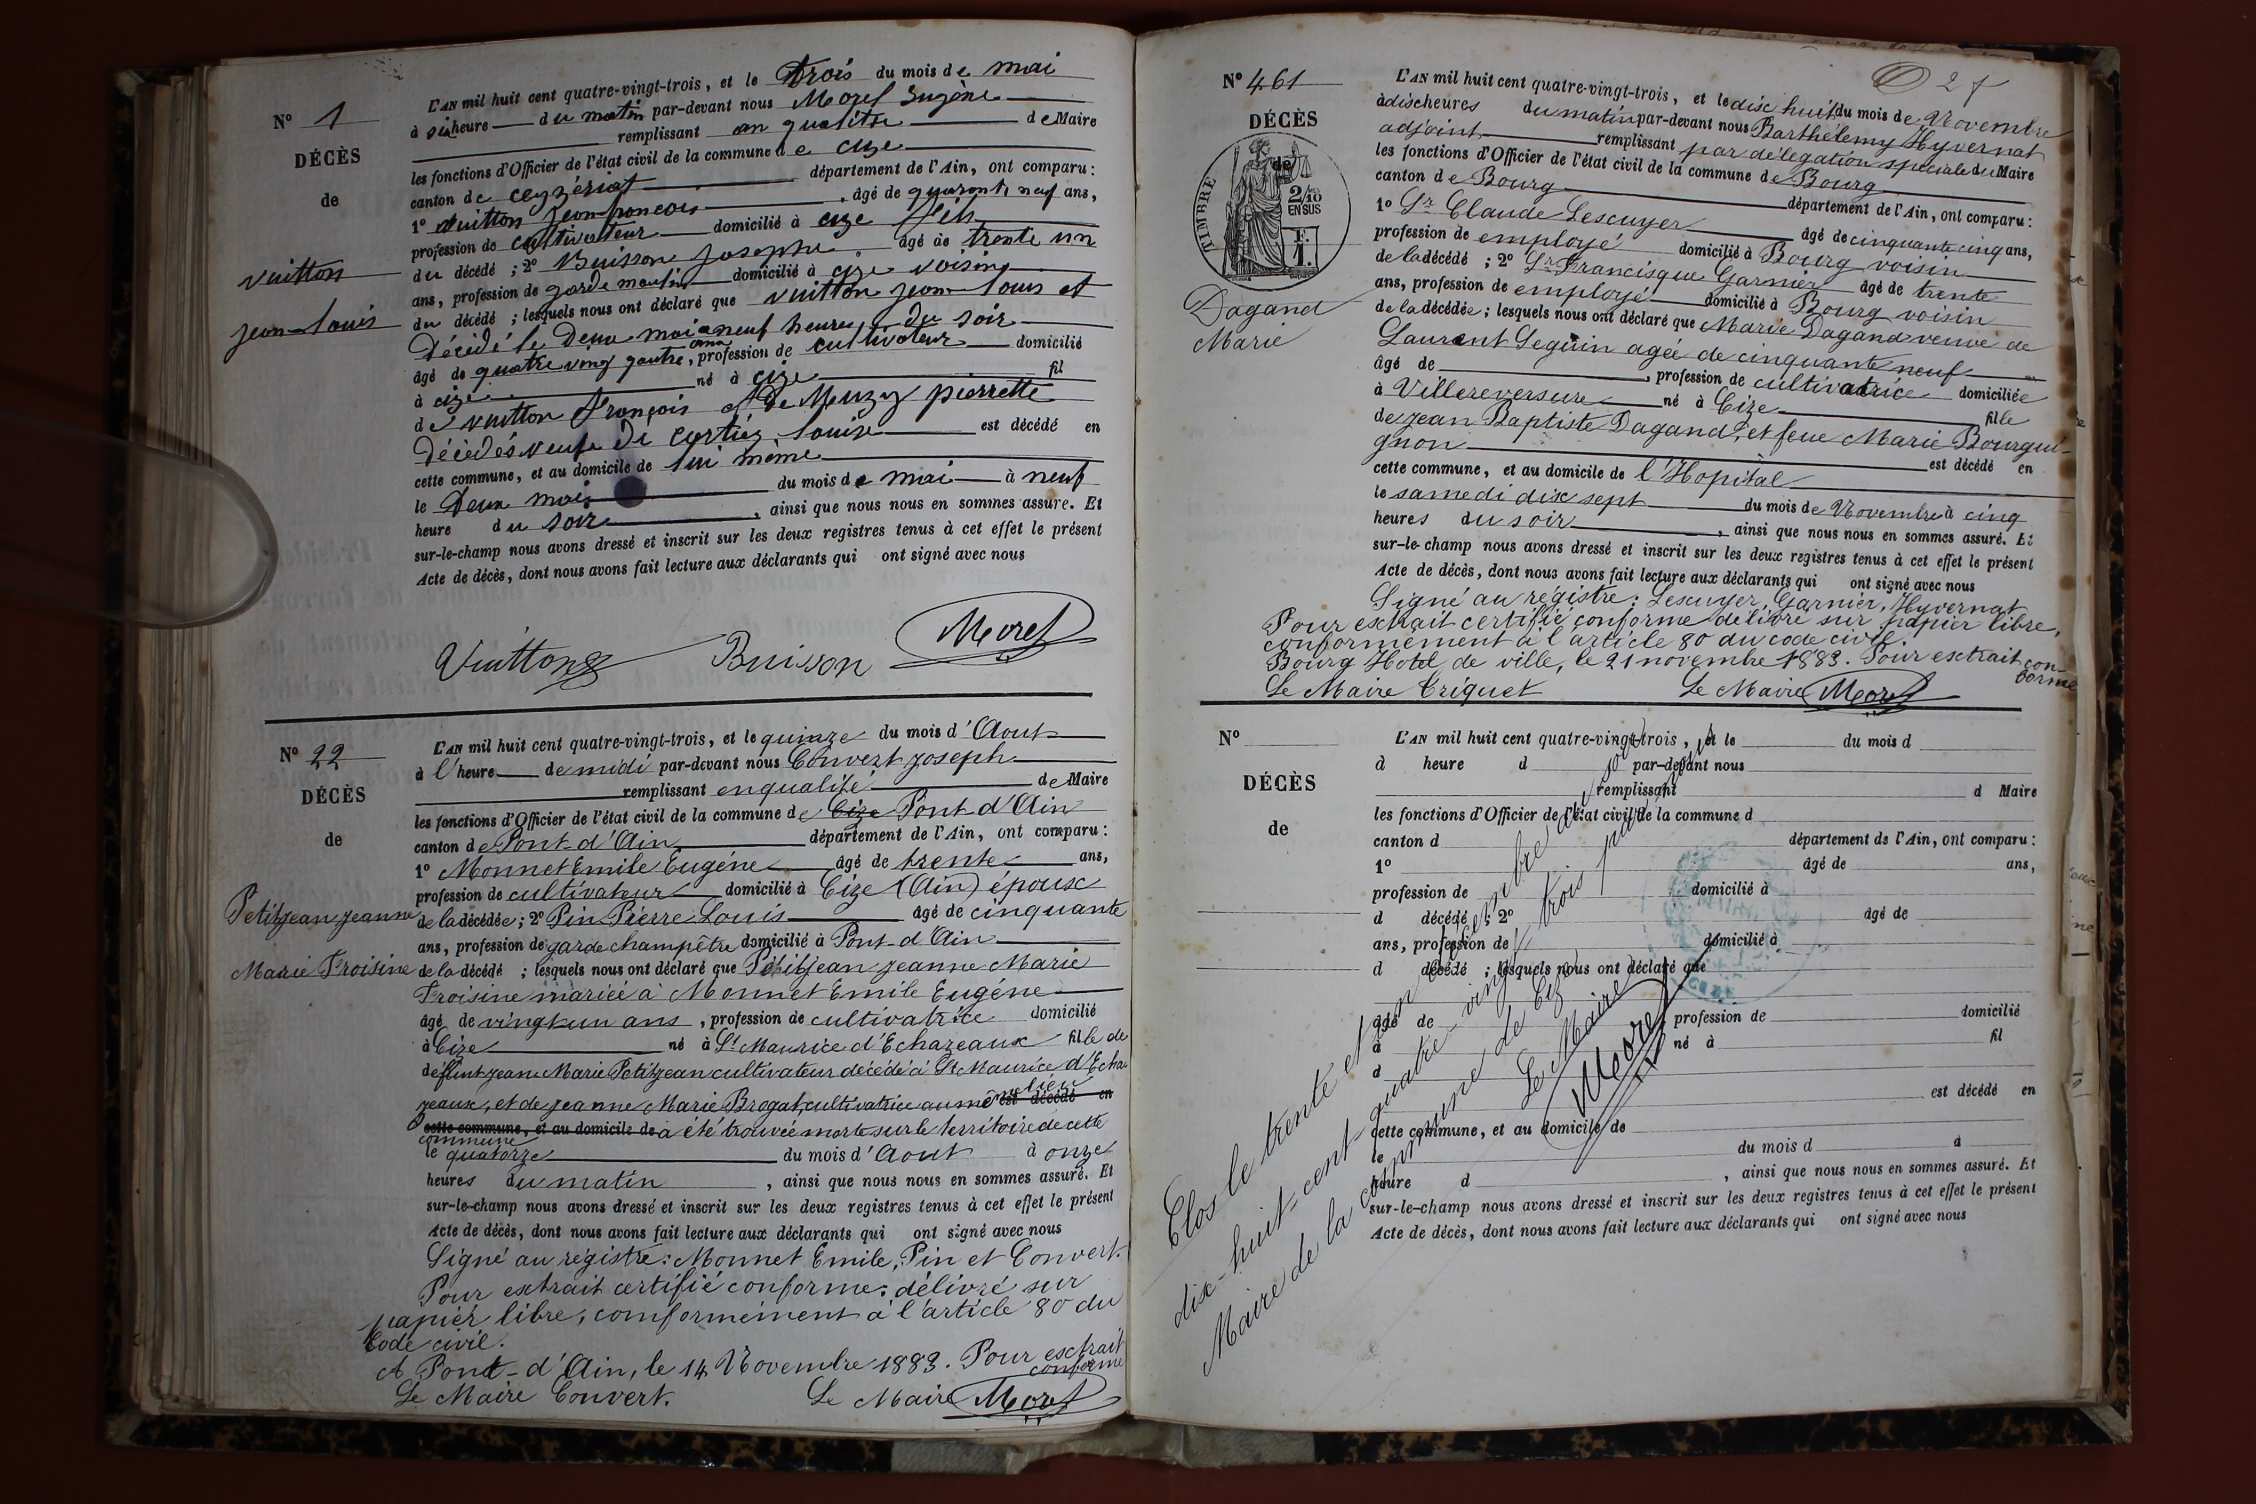 N° 1
DÉCÈS
de
vuitton
jean-Louis
L'AN mil huit cent quatre-vingt-trois, et le trois du mois de mai
à six heure du matin par-devant nous Morel Eugène
remplissant en qualitée de Maire
les fonctions d'Officier de l'état civil de la commune de cize
canton de ceyzériat département de l'Ain, ont comparu :
1° vuitton jean françois, âgé de quarante neuf ans,
profession de cultivateur domicilié à cize fils
du décédé ; 2° Buisson josephe âgé de trente un
ans, profession de garde moulin domicilié à cize voisin
du décédé ; lesquels nous ont déclaré que vuitton jean-Louis et
Décédé le Deux mai a neuf heures du soir
âgé de quatre ving quatre ans, profession de cultivateur domicilié
à cize né à cize fil
de vuitton François et de Meuzy pierrette
Décédés veufe De cortiez Louise est décédé en
cette commune, et au domicile de lui meme
le Deux mai du mois de mai à neuf
heure du soir, ainsi que nous nous en sommes assuré. Et
sur-le-champ nous avons dressé et inscrit sur les deux registres tenus à cet effet le présent
Acte de décès, dont nous avons fait lecture aux déclarants qui ont signé avec nous
Vuitton Buisson Morel
N° 22
DÉCÈS
de
Petitjean jeanne
Marie Froisine
L'AN mil huit cent quatre-vingt-trois, et le quinze du mois d'Aout
à l'heure de midi par-devant nous Convert joseph
remplissant en qualité de Maire
les fonctions d'Officier de l'état civil de la commune de Cize Pont d'Ain
canton de Pont-d'Ain département de l'Ain, ont comparu :
1° Monnet Emile Eugéne âgé de trente ans,
profession de cultivateur domicilié à Cize (Ain) époux
de la décédée ; 2° Pin Pierre Louis âgé de cinquante
ans, profession de garde champêtre domicilié à Pont-d'Ain
de la décédé ; lesquels nous ont déclaré que Petitjean jeanne Marie
Froisine mariée à Monnet Emile Eugéne
âgé de vingt un ans, profession de cultivatrice domicilié
à Cize né à St Maurice d'Echazeaux fille de
défunt jean Marie Petitjean cultivateur décédé à St Maurice d'Echa
zeaux, et de jeanne Marie Brogat, cultivatrice au mê lieu est décédé en
cette commune, et au domicile de a été trouvée morte sur le territoire de cette
commune
le quatorze du mois d'Aout à onze
heures du matin, ainsi que nous nous en sommes assuré. Et
sur-le-champ nous avons dressé et inscrit sur les deux registres tenus à cet effet le présent
Acte de décès, dont nous avons fait lecture aux déclarants qui ont signé avec nous
Signé au registre : Monnet Emile, Pin et Convert.
Pour extrait certifié conforme : délivré sur
papier libre, conformément à l'article 80 du
Code civil.
A Pont-d'Ain, le 14 Novembre 1883. Pour extrait
conforme
Le Maire Convert. Le Maire Morel
27
N° 461
DÉCÈS
de
TIMBRE
2/10
EN SUS
F.
1.
Dagand
Marie
L'AN mil huit cent quatre-vingt-trois, et le dix huit du mois de Novembre
à dix heures du matin par-devant nous Barthélemy Hyvernat
adjoint remplissant par délégation spéciale du Maire
les fonctions d'Officier de l'état civil de la commune de Bourg
canton de Bourg département de l'Ain, ont comparu :
1° Sr Claude Lescuyer âgé de cinquante cinq ans,
profession de employé domicilié à Bourg voisin
de la décédé ; 2° Sr Francisque Garnier âgé de trente
ans, profession de employé domicilié à Bourg voisin
de la décédée ; lesquels nous ont déclaré que Marie Dagand veuve de
Laurent Seguin agée de cinquante neuf
âgé de, profession de cultivatrice domiciliée
à Villereversure né à Cize fille
de jean Baptiste Dagand, et feue Marie Bourgui-
gnon est décédé en
cette commune, et au domicile de l'Hopital
le samedi dix sept du mois de Novembre à cinq
heures du soir, ainsi que nous nous en sommes assuré. Et
sur-le-champ nous avons dressé et inscrit sur les deux registres tenus à cet effet le présent
Acte de décès, dont nous avons fait lecture aux déclarants qui ont signé avec nous
Signé au registre : Lescuyer, Garnier, Hyvernat
Pour extrait certifié conforme délivré sur papier libre,
conformément à l'article 80 du code civil.
Bourg Hotel de ville, le 21 novembre 1883. Pour extrait con-
forme
Le Maire Criquet Le Maire Morel
N°
DÉCÈS
de
L'AN mil huit cent quatre-vingt-trois, et le du mois d
à heure d par-devant nous
remplissant d Maire
les fonctions d'Officier de l'état civil de la commune d
canton d département de l'Ain, ont comparu :
1° âgé de ans,
profession de domicilié à
d décédé ; 2° âgé de
ans, profession de domicilié à
d décédé ; lesquels nous ont déclaré que
âgé de, profession de domicilié
à né à fil
d
est décédé en
cette commune, et au domicile de
le du mois d à
heure d, ainsi que nous nous en sommes assuré. Et
sur-le-champ nous avons dressé et inscrit sur les deux registres tenus à cet effet le présent
Acte de décès, dont nous avons fait lecture aux déclarants qui ont signé avec nous
Clos le trente et un Décembre au soir
dix-huit-cent-quatre-vingt trois par nous
Maire de la commune de Cize
Le Maire
Morel